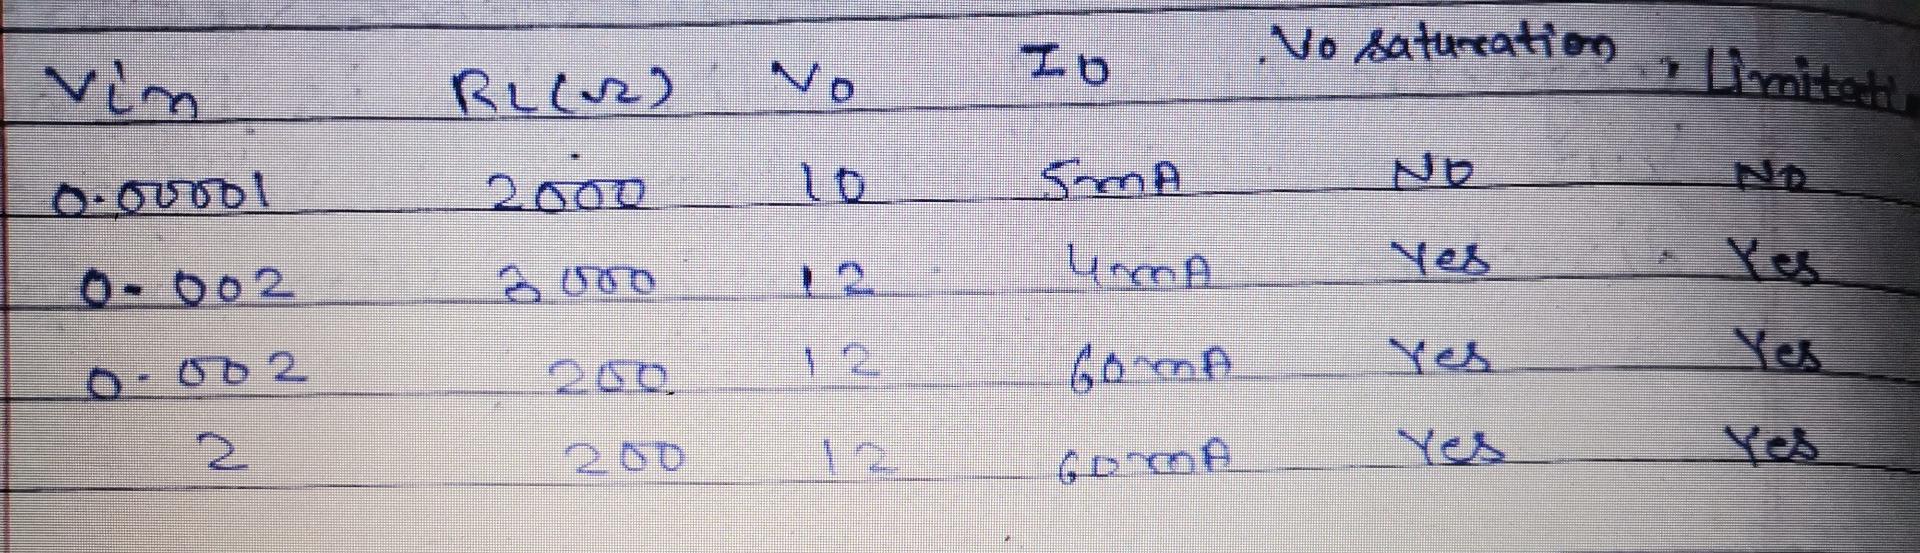 Vin RL(Ω) Vo Io Vo saturation, Limitati
0.00001 2000 10 5mA No No
0.002 3000 12 4mA Yes Yes
0.002 200 12 60mA Yes Yes
2 200 12 60mA Yes Yes